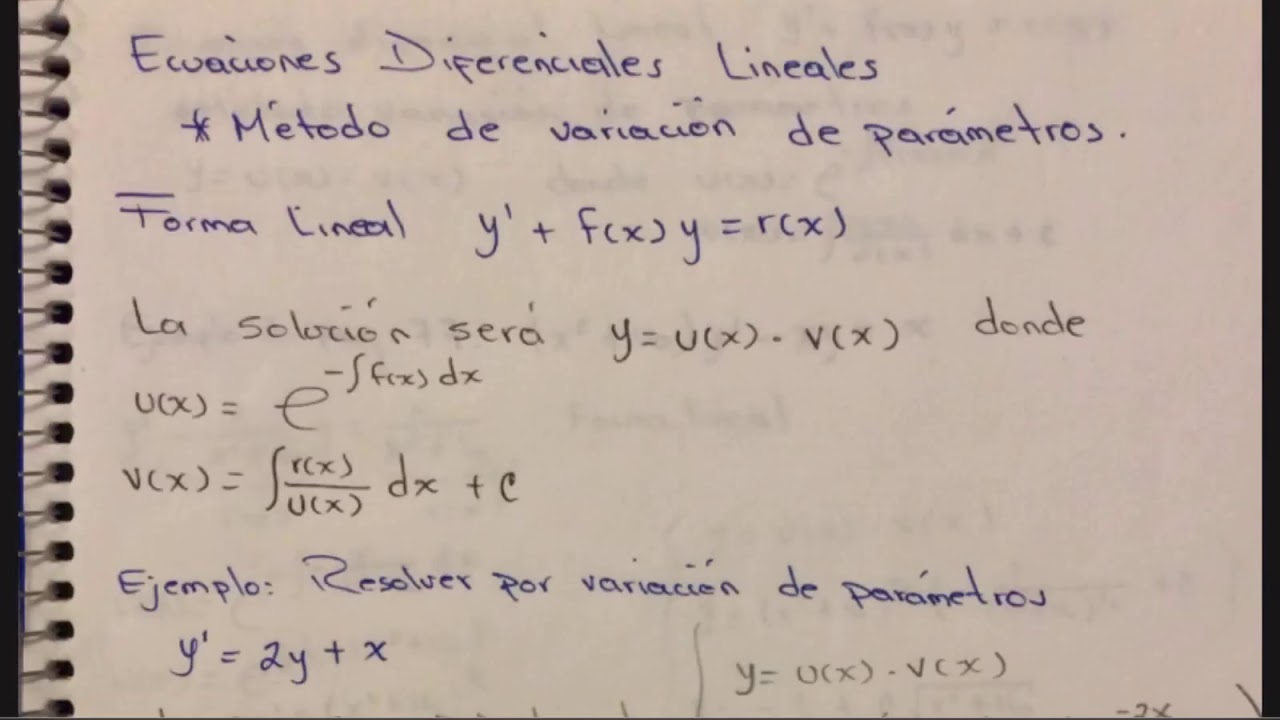 Ecuaciones Diferenciales Lineales
* Método de variación de parámetros.
Forma lineal y' + f(x) y = r(x)
La solución será y = u(x) · v(x) donde
u(x) = e^{-∫f(x) dx}
v(x) = ∫ r(x)/u(x) dx + c
Ejemplo: Resolver por variación de parámetros
y' = 2y + x
y = u(x) · v(x)
-2x